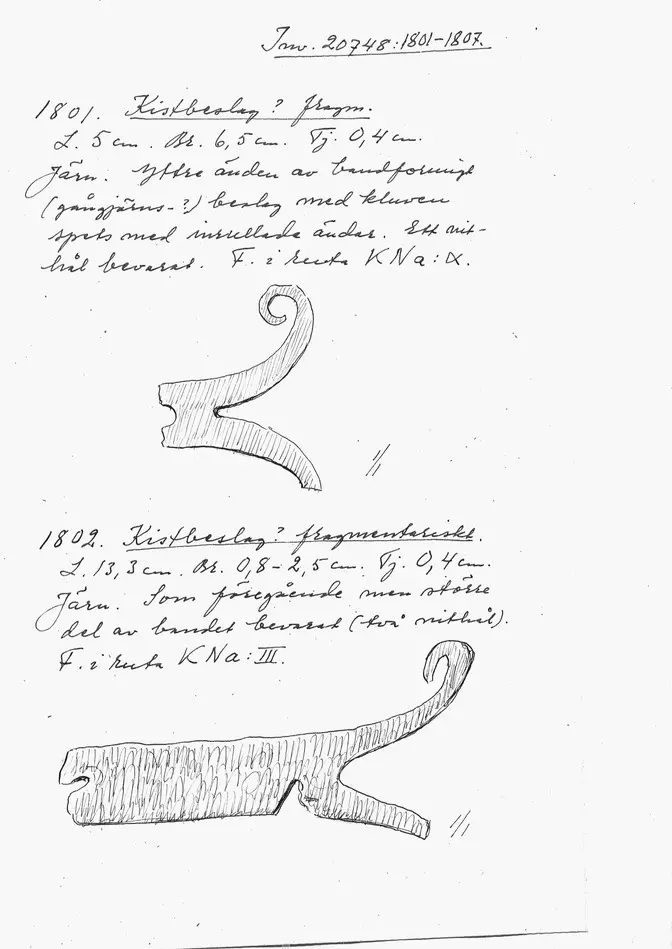 Inv. 20748:1801-1807.
1801. Kistbeslag? fragm.
L. 5 cm. Br. 6,5 cm. Tj. 0,4 cm.
Järn. Yttre änden av bandformigt
(gångjärns-?) beslag med kluven
spets med inrullade ändar. Ett nit-
hål bevarat. F. i ruta KNa:IX.
1/1
1802. Kistbeslag? fragmentariskt.
L. 13,3 cm. Br. 0,8-2,5 cm. Tj. 0,4 cm.
Järn. Som föregående men större
del av bandet bevarat (två nithål).
F. i ruta KNa:III.
1/1